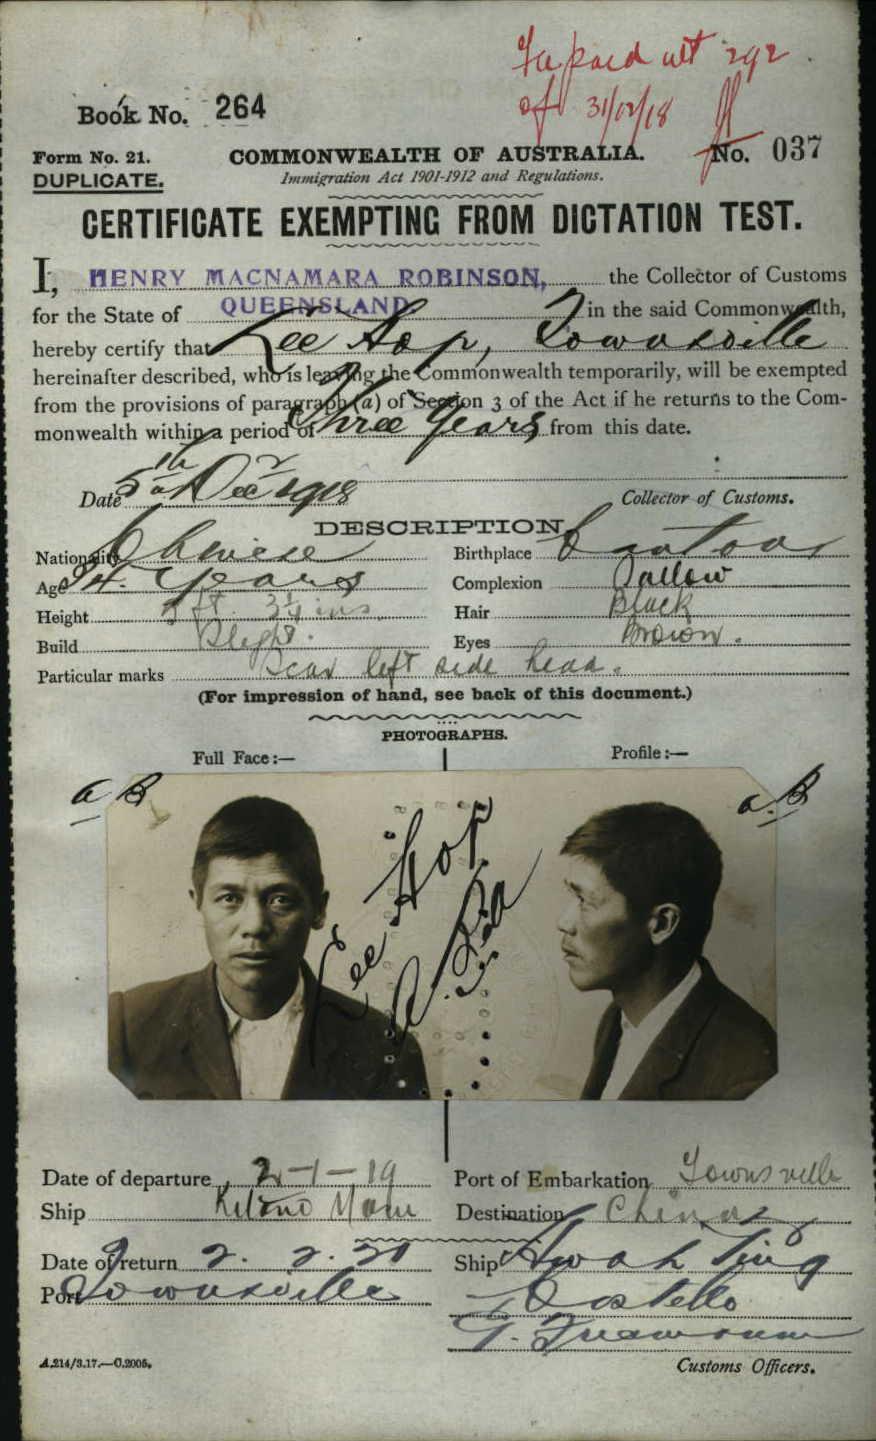 Book No. 264
of 31/12/18
Form No. 21.
DUPLICATE.
COMMONWEALTH OF AUSTRALIA.
No. 037
Immigration Act 1901-1912 and Regulations.
CERTIFICATE EXEMPTING FROM DICTATION TEST.
I, HENRY MACNAMARA ROBINSON, the Collector of Customs
for the State of QUEENSLAND in the said Commonwealth,
hereby certify that Lee Hop, Townsville
hereinafter described, who is leaving the Commonwealth temporarily, will be exempted
from the provisions of paragraph (a) of Section 3 of the Act if he returns to the Com-
monwealth within a period of Three Years from this date.
Date 5th Decr 1918 Collector of Customs.
DESCRIPTION
Nationality Chinese Birthplace Canton
Age 34 years Complexion Sallow
Height 5 ft. 3¼ ins. Hair Black
Build Slight. Eyes Brown.
Particular marks Scar left side head.
(For impression of hand, see back of this document.)
PHOTOGRAPHS.
Full Face:— Profile:—
a B a.B
Lee Hop
Date of departure 2-1-19 Port of Embarkation Townsville
Ship Kitano Maru Destination China
Date of return 2. 2. 20 Ship Hwah Ping
Port Townsville Costello
Customs Officers.
A.214/3.17.—C.2005.